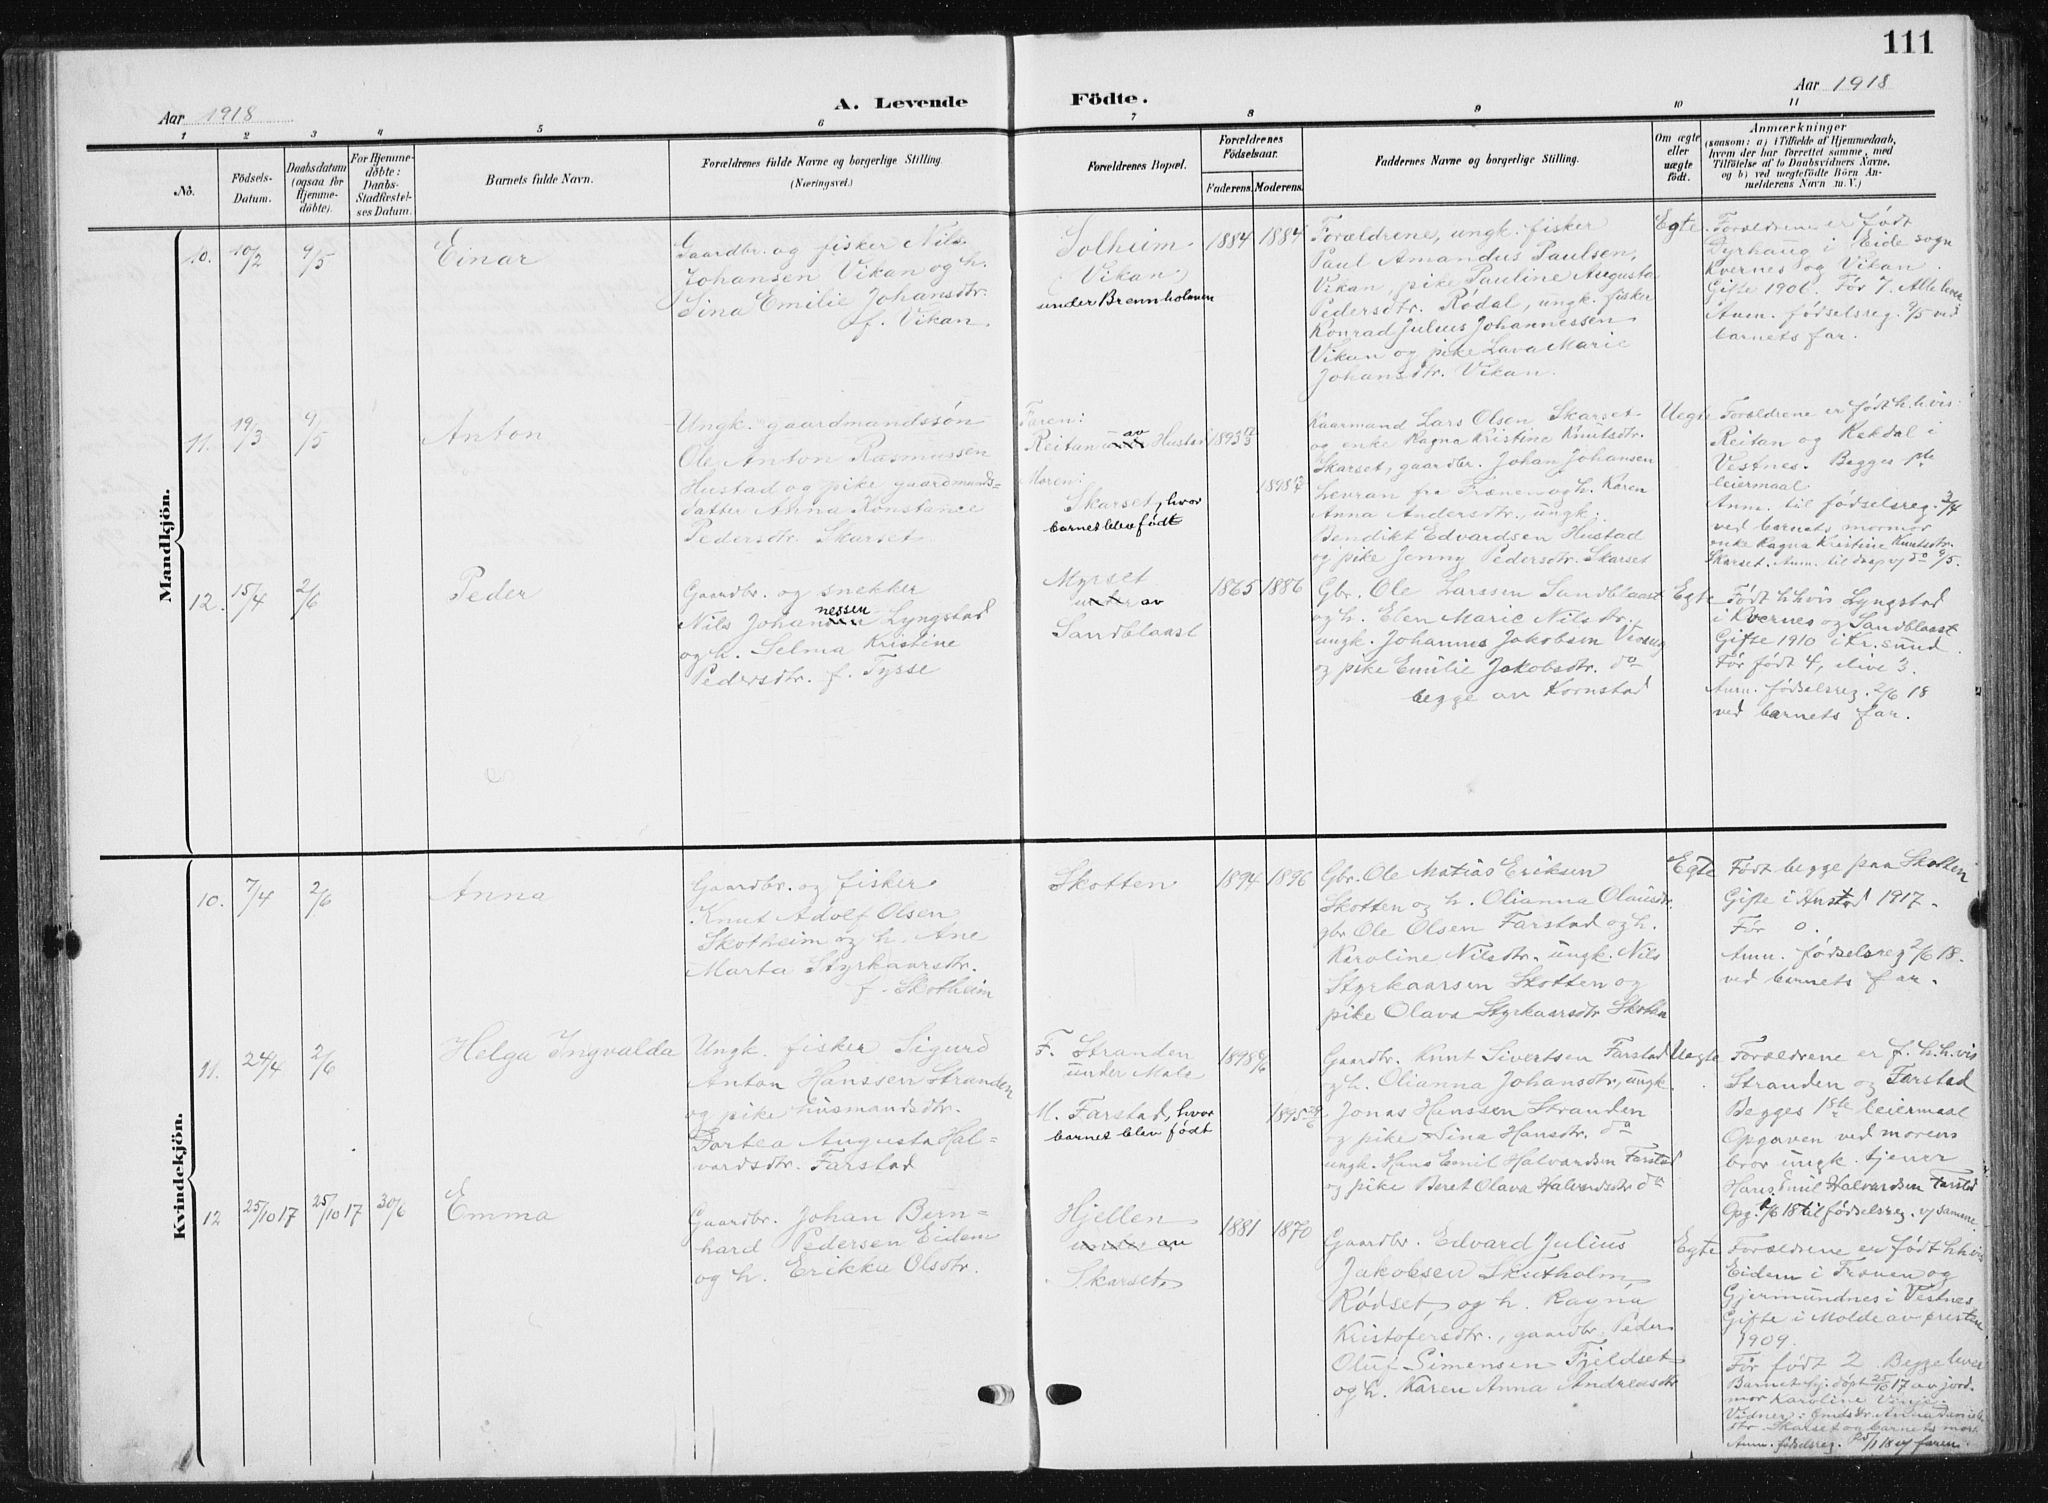 111
Aar 1918
A. Levende Födte.
Aar 1918
1 2 3 4 5 6 7 8 9 10 11
No.
Födsels-
Datum.
Daabsdatum
(ogsaa for
Hjemme-
döbte).
For Hjemme-
döbte:
Daabs-
Stadfæstel-
ses Datum.
Barnets fulde Navn.
Forældrenes fulde Navne og borgerlige Stilling.
(Næringsvei.)
Forældrenes Bopæl.
Forældrenes
Födselsaar.
Faderens. Moderens.
Faddernes Navne og borgerlige Stilling.
Om ægte
eller
uægte
födt.
Anmærkninger
(saasom: a) i Tilfælde af Hjemmedaab,
hvem der har forrettet samme, med
Tilföielse af to Daabsvidners Navne,
og b) ved uægtefödte Börn An-
melderens Navn m. V.)
Mandkjön.
10. 10/2 9/5
Einar
Gaardbr. og fisker Nils
Johansen Vikan og h.
Sina Emilie Johansdtr.
f. Vikan.
Solheim
Vikan,
under Brennholmen
1884 1884
Forældrene, ungk. fisker
Paul Amandus Paulsen,
Vikan, pike Pauline Augusta
Pedersdtr. Rødal, ungk. fisker
Konrad Julius Johannessen
Vikan og pike Lava Marie
Johansdtr. Vikan.
Egte
Forældrene er født
Dyrhaug i Eide sogn
Kvernes og Vikan.
Gifte 1906. Før 7. Alle lever
Anm. fødselsreg. 9/5 ved
barnets far.
11. 19/3 9/5
Anton
Ungk. gaardmandssøn
Ole Anton Rasmussen
Hustad og pike gaardmands-
datter Anna Konstance
Pedersdtr. Skarset
Faren:
Reitan av Hustad
Moren:
Skarset, hvor
barnet blev født
1893
1898
Kaarmand Lars Olsen Skarset
og enke Ragna Kristine Knutsdtr.
Skarset, gaardbr. Johan Johansen
Levran fra Frænen og h. Karen
Anna Andersdtr., ungk.
Bendikt Edvardsen Hustad
og pike Jenny Pedersdtr. Skarset
Uegte
Forældrene er født h.hvis:
Reitan og Kekdal i
Vestnes. Begges 1ste
leiermaal
Anm. til fødselsreg. 3/4
ved barnets mormor
enke Ragna Kristine Knutsdtr.
Skarset. Anm. til daap v/ do 9/5.
12. 15/4 2/6
Peder
Gaardbr. og snekker
Nils Johannessen Lyngstad
og h. Selma Kristine
Pedersdtr. f. Tysse
Myrset
under av
Sandblaast
1865 1886
Gbr. Ole Larssen Sandblaast
og h. Elen Marie Nilsdtr.
ungk. Johannes Jakobsen Vevang
og pike Emilie Jakobsdtr. do
begge av Kornstad
Egte
Født h.hvis Lyngstad
i Kvernes og Sandblaast
Gifte 1910 i Kr.sund.
Før født 4, i live 3.
Anm. fødselsreg. 2/6 18
ved barnets far.
Kvindekjön.
10. 7/4 2/6
Anna
Gaardbr. og fisker
Knut Adolf Olsen
Skotheim og h. Ane
Marta Styrkaarsdtr.
f. Skotheim
Skotten
1894 1896
Gbr. Ole Matias Eriksen
Skotten og h. Olianna Olausdtr.
gbr. Ole Olsen Farstad og h.
Karoline Nilsdtr. ungk. Nils
Styrkaarsen Skotten og
pike Olava Styrkaarsdtr Skotten
Egte
Født begge paa Skotten
Gifte i Hustad 1917.
Før 0.
Anm. fødselsreg. 2/6 18.
ved barnets far.
11. 24/4 2/6
Helga Ingvalda
Ungk. fisker Sigurd
Anton Hanssen Stranden
og pike husmandsdtr.
Dortea Augusta Hal-
vardsdtr. Farstad
F. Stranden
under Male
M. Farstad, hvor
barnet blev født
1898
1895
Gaardbr. Knut Sivertsen Farstad
og h. Olianna Johansdtr., ungk.
Jonas Hanssen Stranden
og pike Sina Hansdtr. do
ungk. Hans Emil Halvardsen Farstad
og pike Beret Olava Halvardsdtr do
Uegte
Forældrene er f. h.hvis
Stranden og Farstad
Begges 1ste leiermaal
Opgaven ved morens
bror ungk. tjener
Hans Emil Halvardsen Farstad
Opg. 1/6 18 til fødselsreg. v/ samme.
12 25/10 17 25/10 17 30/6
Emma
Gaardbr. Johan Bern-
hard Pedersen Eidem
og h. Erikka Olsdtr.
Hjellen
under av
Skarset
1881 1870
Gaardbr. Edvard Julius
Jakobsen Skutholm,
Rødset, og h. Ragna
Kristofersdtr., gaardbr. Peder
Oluf Simensen Fjeldset
og h. Karen Anna Andreasdtr
Egte
Forældrene er født h.hvis
Eidem i Frænen og
Gjermundnes i Vestnes
Gifte i Molde av presten
1909.
Før født 2. Begge lever
Barnet hj. døpt 25/10 17 av jord
mor Karoline Vinje.
Vidner: Gmdsdtr. Anna Daniels
dtr Skarset og barnets mor.
Anm. fødselsreg. 25/1 18 v/ faren.